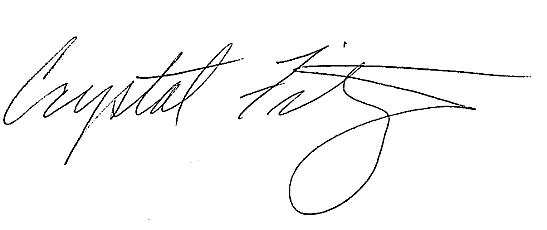 Crystal Fitz